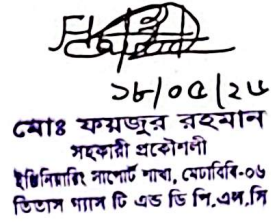 ১৮/০৫/২৫
মোঃ ফয়জুর রহমান
সহকারী প্রকৌশলী
ইঞ্জিনিয়ারিং সাপোর্ট শাখা, মেঢাবিবি-০৬
তিতাস গ্যাস টি এন্ড ডি পি.এল.সি